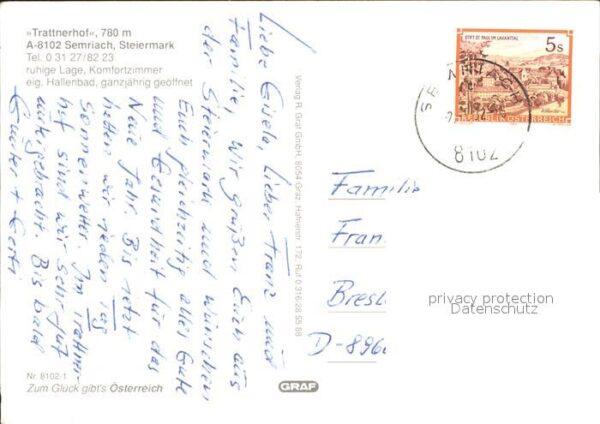 »Trattnerhof«, 780 m
A-8102 Semriach, Steiermark
Tel. 0 31 27/82 23
ruhige Lage, Komfortzimmer
eig. Hallenbad, ganzjährig geöffnet
Liebe Gisela, Lieber Franz und
Familie, Wir grüßen Euch aus
der Steiermark und wünschen
Euch gleichzeitig alles Gute
und Gesundheit für das
Neue Jahr. Bis jetzt
hatten wir jeden Tag
Sonnenwetter. Im Trattner-
hof sind wir sehr gut
untergebracht. Bis bald
Verlag R. Graf GmbH, 8054 Graz, Hafnerstr. 172, Ruf 0 316/28 55 88
Nr. 8102-1
Zum Glück gibt's Österreich
GRAF
STIFT ST. PAUL IM LAVANTTAL
5s
REPUBLIK ÖSTERREICH
8102
Familie
Fran
Bresl
D-896
privacy protection
Datenschutz